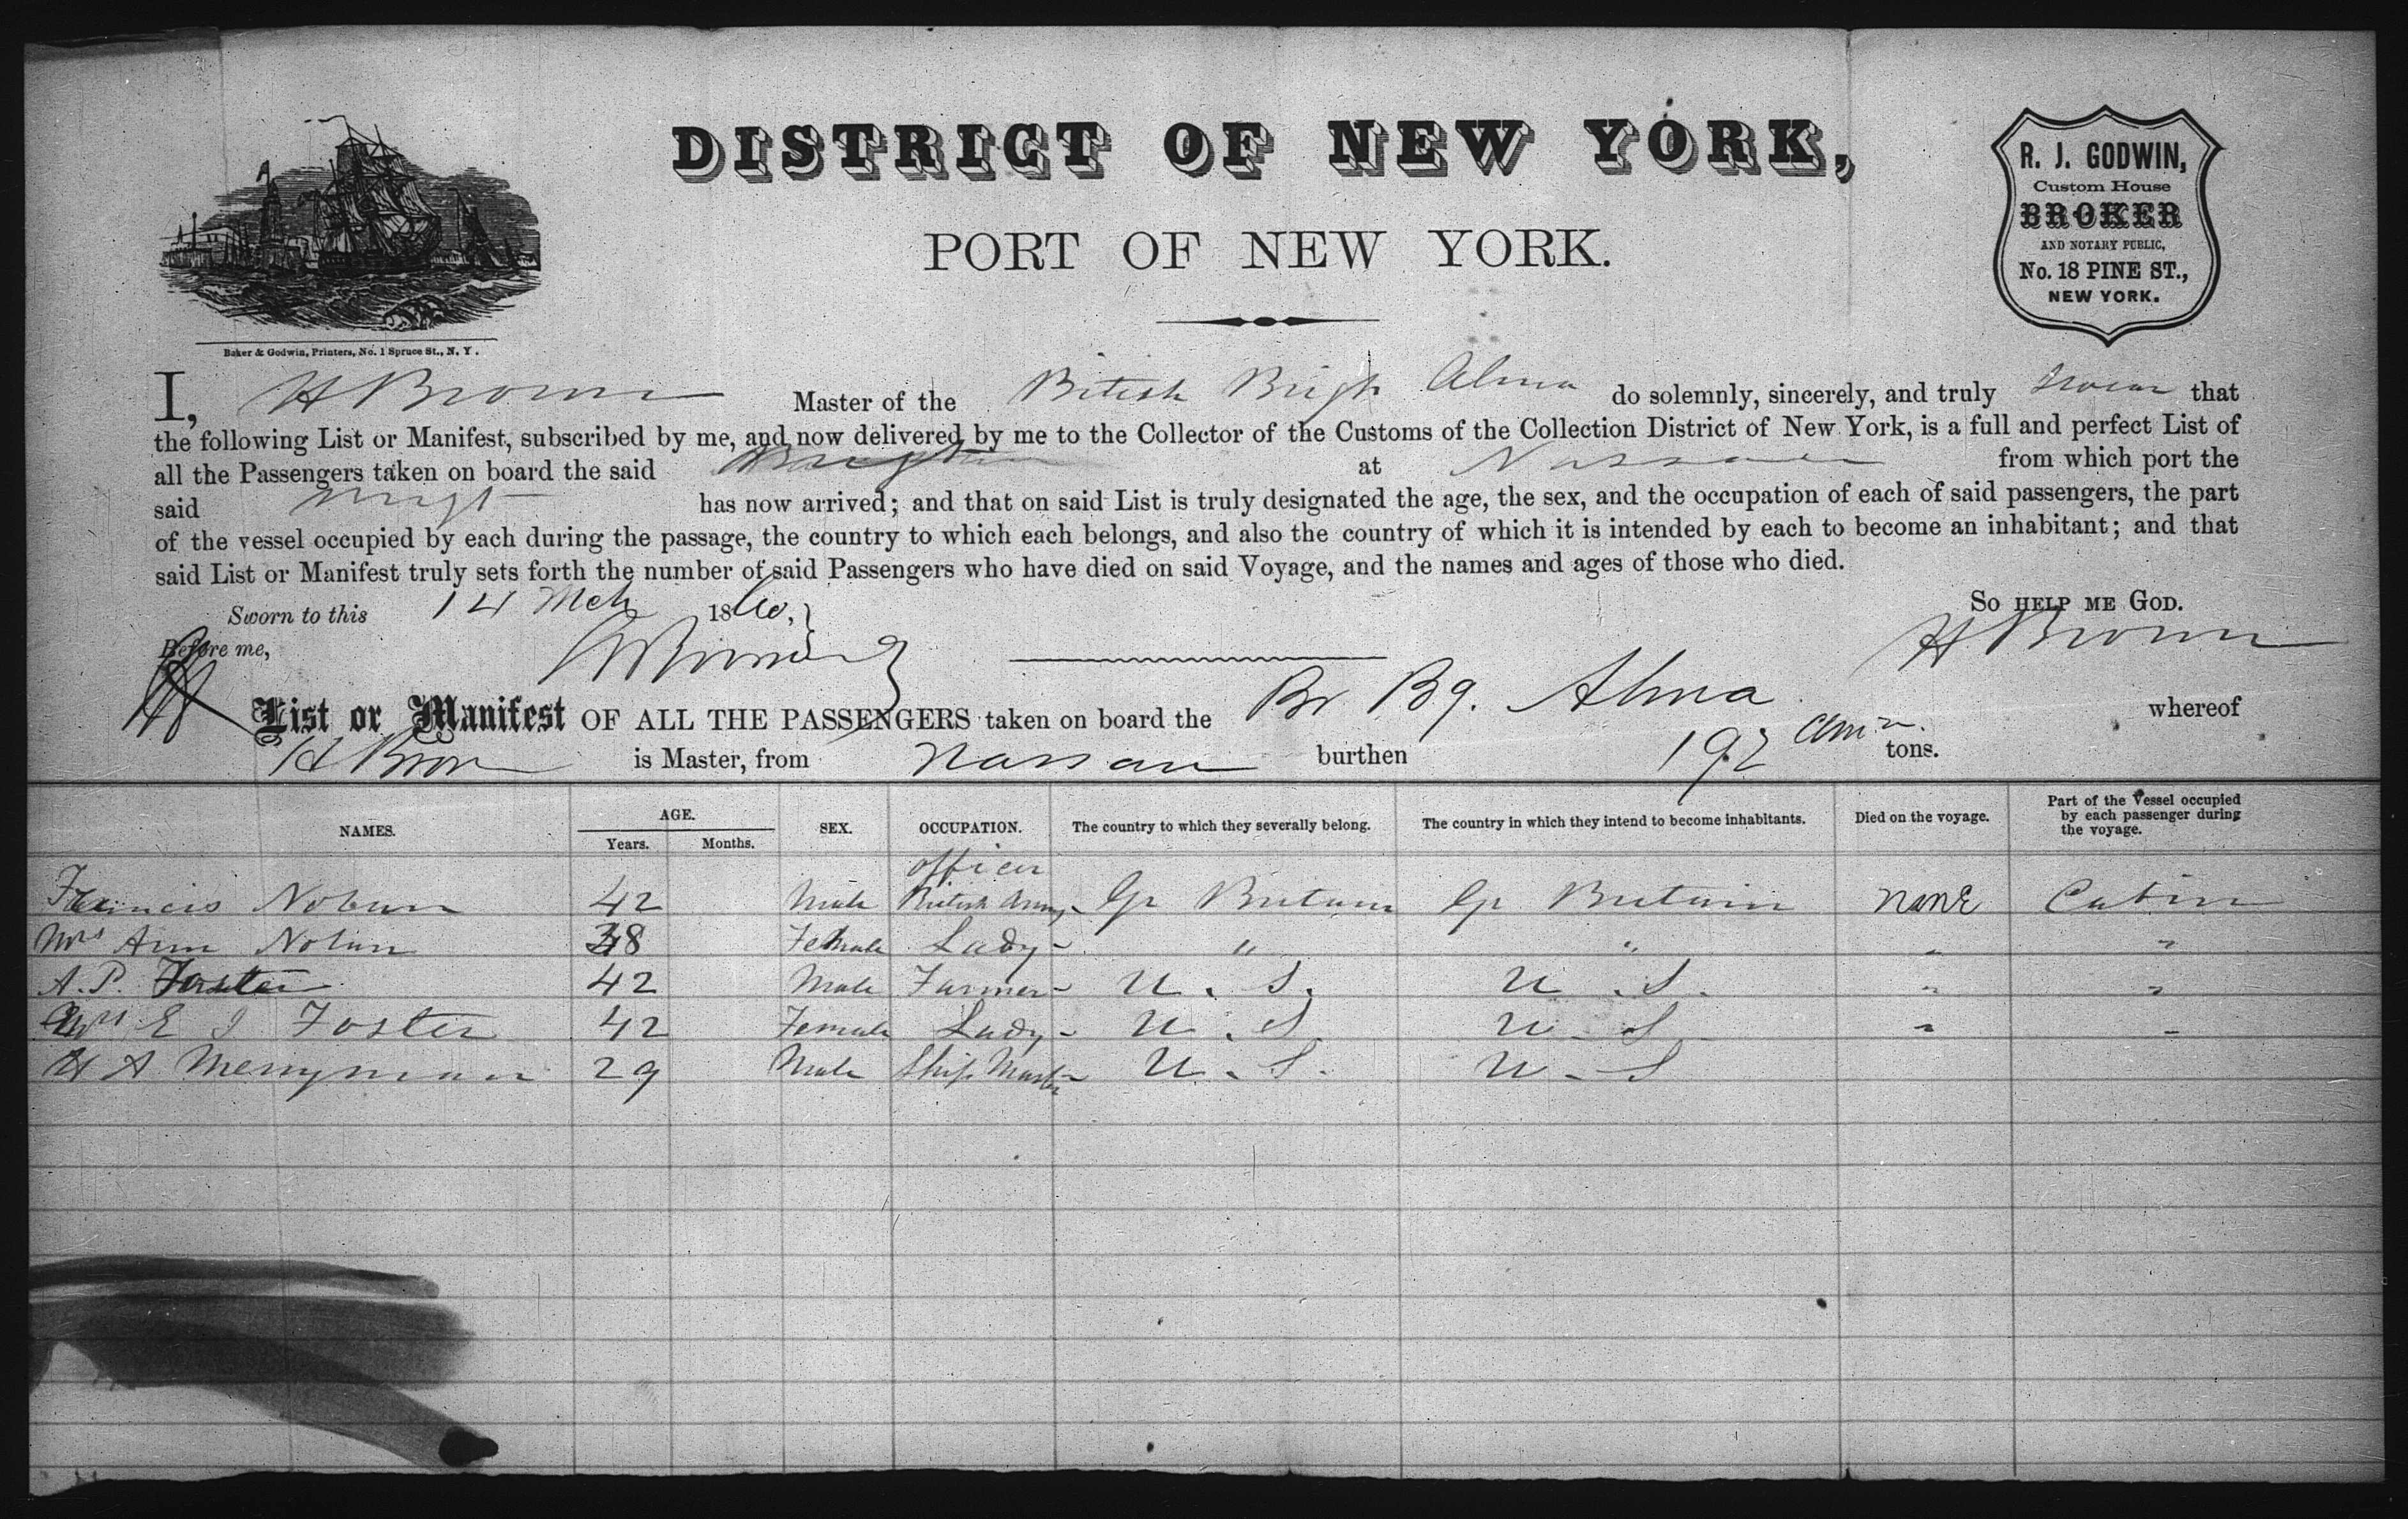 DISTRICT OF NEW YORK,
PORT OF NEW YORK.
R. J. GODWIN,
Custom House
BROKER
AND NOTARY PUBLIC,
No. 18 PINE ST.,
NEW YORK.
Baker & Godwin, Printers, No. 1 Spruce St., N. Y.
I, H Brown Master of the British Brigt Alma do solemnly, sincerely, and truly swear that
the following List or Manifest, subscribed by me, and now delivered by me to the Collector of the Customs of the Collection District of New York, is a full and perfect List of
all the Passengers taken on board the said at Nassau from which port the
said Brigt has now arrived; and that on said List is truly designated the age, the sex, and the occupation of each of said passengers, the part
of the vessel occupied by each during the passage, the country to which each belongs, and also the country of which it is intended by each to become an inhabitant; and that
said List or Manifest truly sets forth the number of said Passengers who have died on said Voyage, and the names and ages of those who died.
Sworn to this 14 Mch 1860, So HELP ME GOD.
Before me, H Brown
List or Manifest OF ALL THE PASSENGERS taken on board the Br Bg. Alma whereof
H Brown is Master, from Nassau burthen 192 tons.
NAMES. AGE. Years. Months. SEX. OCCUPATION. The country to which they severally belong. The country in which they intend to become inhabitants. Died on the voyage. Part of the Vessel occupied by each passenger during the voyage.
Francis Nolan 42 Male officer British Army Gr Britain Gr Britain None Cabin
Mrs Ann Nolan 38 Female Lady " " " "
A. P. Foster 42 Male Farmer U. S. U. S. " "
Mrs E J Foster 42 Female Lady U. S U. S " "
H A Merryman 29 Male Ship Master U. S. U. S